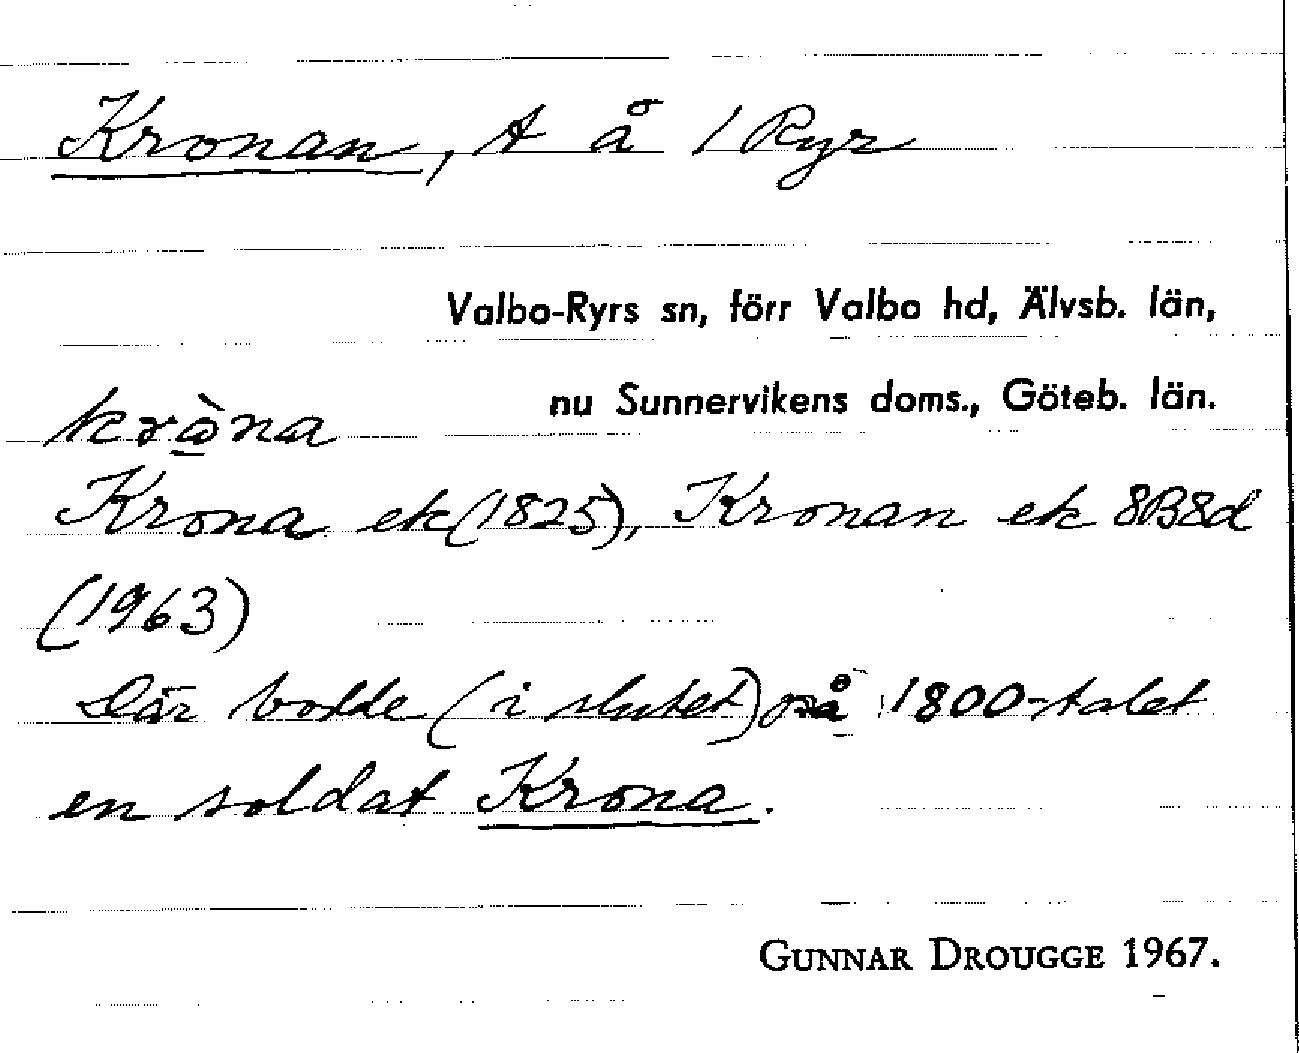 Kronan, t å 1 Ryr
Valbo-Ryrs sn, förr Valbo hd, Älvsb. län,
nu Sunnervikens doms., Göteb. län.
krå̱̀na
Krona ek (1825), Kronan ek 8B8d
(1963)
Där bodde (i slutet) på 1800-talet
en soldat Krona.
GUNNAR DROUGGE 1967.